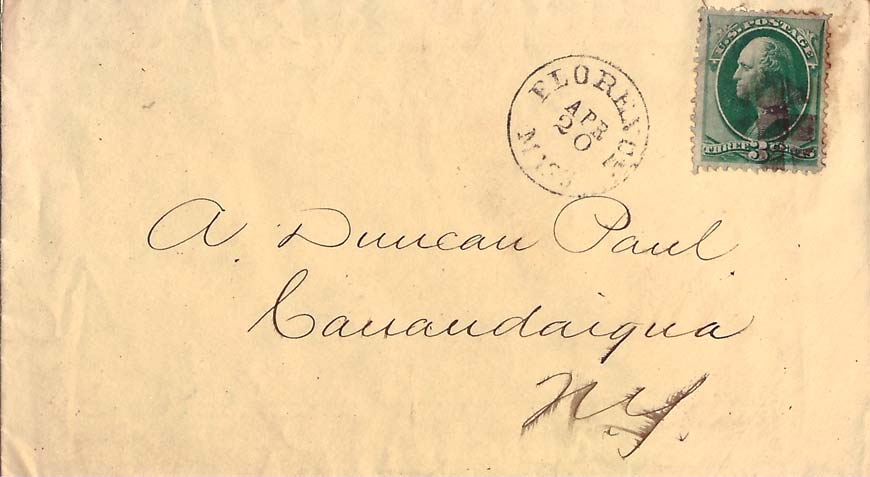 U.S. POSTAGE
THREE 3 CENTS
FLORENCE
APR
20
A. Duncan Paul
Canandaigua
NY.